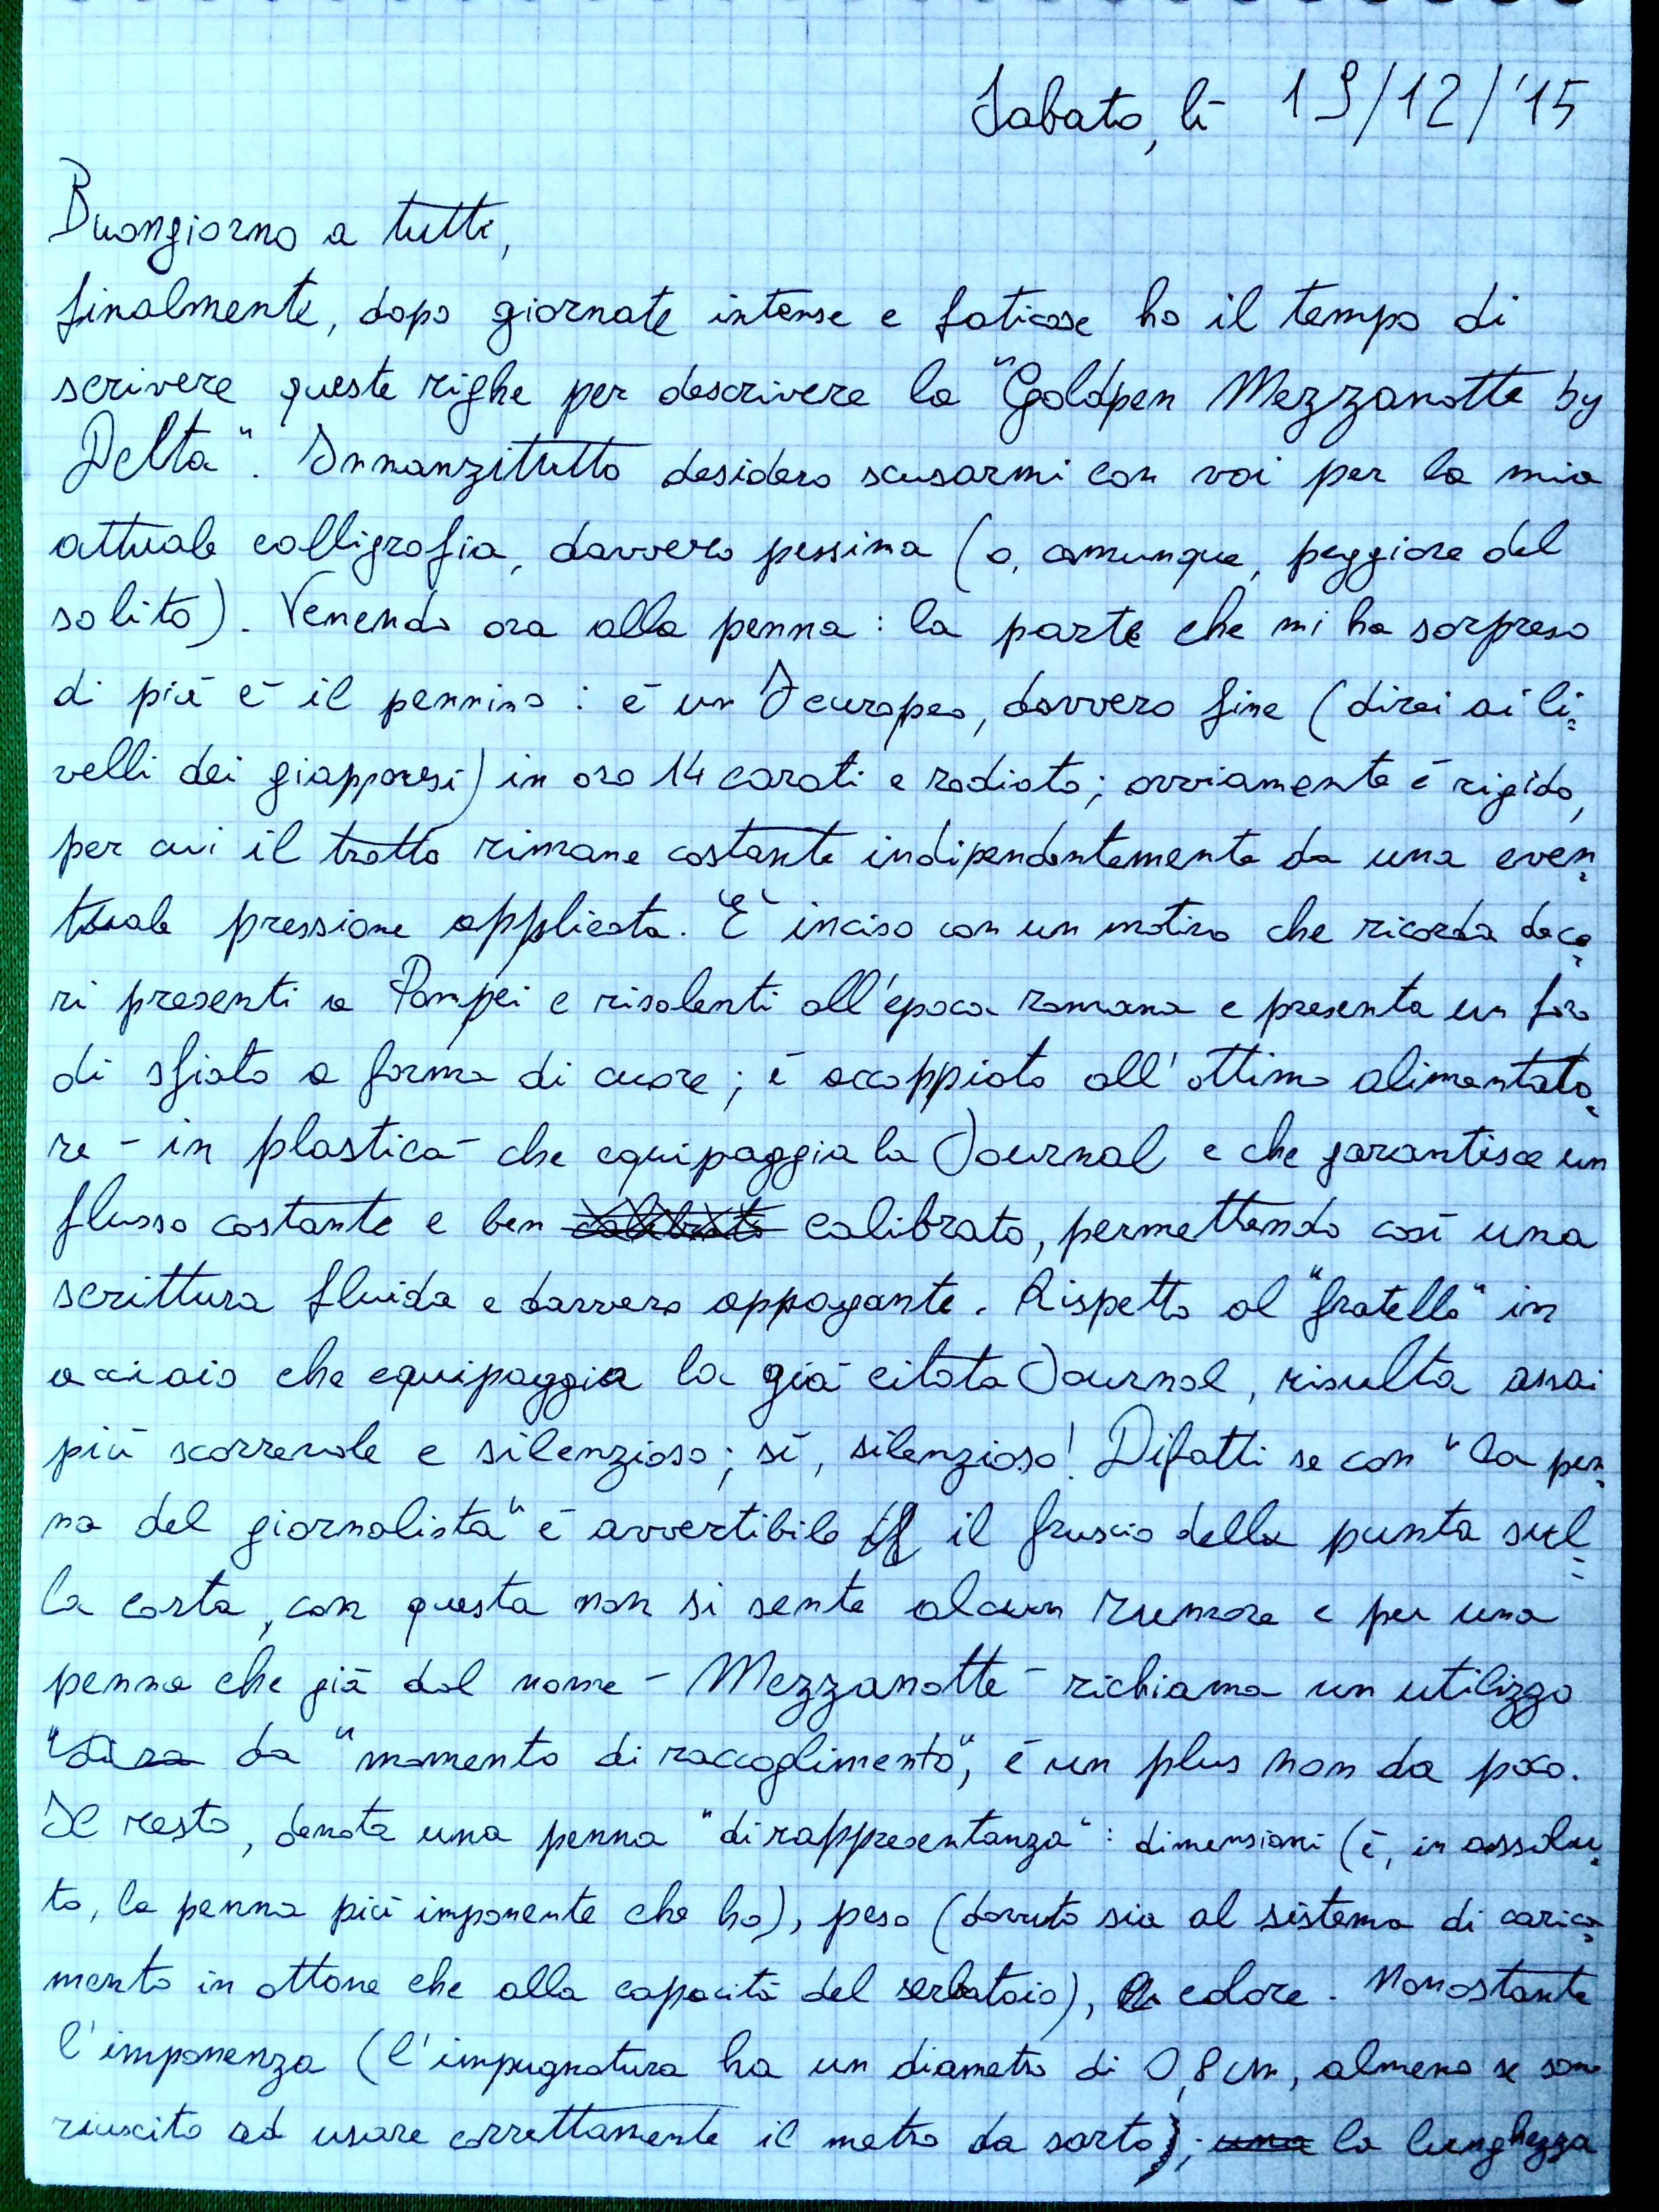 Sabato, lì 19/12/'15
Buongiorno a tutti,
finalmente, dopo giornate intense e faticose ho il tempo di
scrivere queste righe per descrivere la "Goldpen Mezzanotte by
Delta". Innanzitutto desidero scusarmi con voi per la mia
attuale calligrafia, davvero pessima (o, comunque, peggiore del
solito). Venendo ora alla penna: la parte che mi ha sorpreso
di più è il pennino: è un F europeo, davvero fine (direi ai li=
velli dei giapponesi) in oro 14 carati e rodiato; ovviamente è rigido,
per cui il tratto rimane costante indipendentemente da una even=
tuale pressione applicata. È inciso con un motivo che ricorda deco=
ri presenti a Pompei e risalenti all'epoca romana e presenta un foro
di sfiato a forma di cuore; è accoppiato all'ottimo alimentato=
re - in plastica - che equipaggia la Journal e che garantisce un
flusso costante e ben calibrato calibrato, permettendo così una
scrittura fluida e davvero appagante. Rispetto al "fratello" in
acciaio che equipaggia la già citata Journal, risulta assai
più scorrevole e silenzioso; sì, silenzioso! Difatti se con "la pen=
na del giornalista" è avvertibile il fruscio della punta sul=
la carta, con questa non si sente alcun rumore e per una
penna che già dal nome - Mezzanotte - richiama un utilizzo
da "momento di raccoglimento", è un plus non da poco.
Il resto, denota una penna "di rappresentanza": dimensioni (è, in assolu=
to, la penna più imponente che ho), peso (dovuto sia al sistema di carica=
mento in ottone che alla capacità del serbatoio), colore. Nonostante
l'imponenza (l'impugnatura ha un diametro di 0,8 cm, almeno se sono
riuscito ad usare correttamente il metro da sarto); una la lunghezza